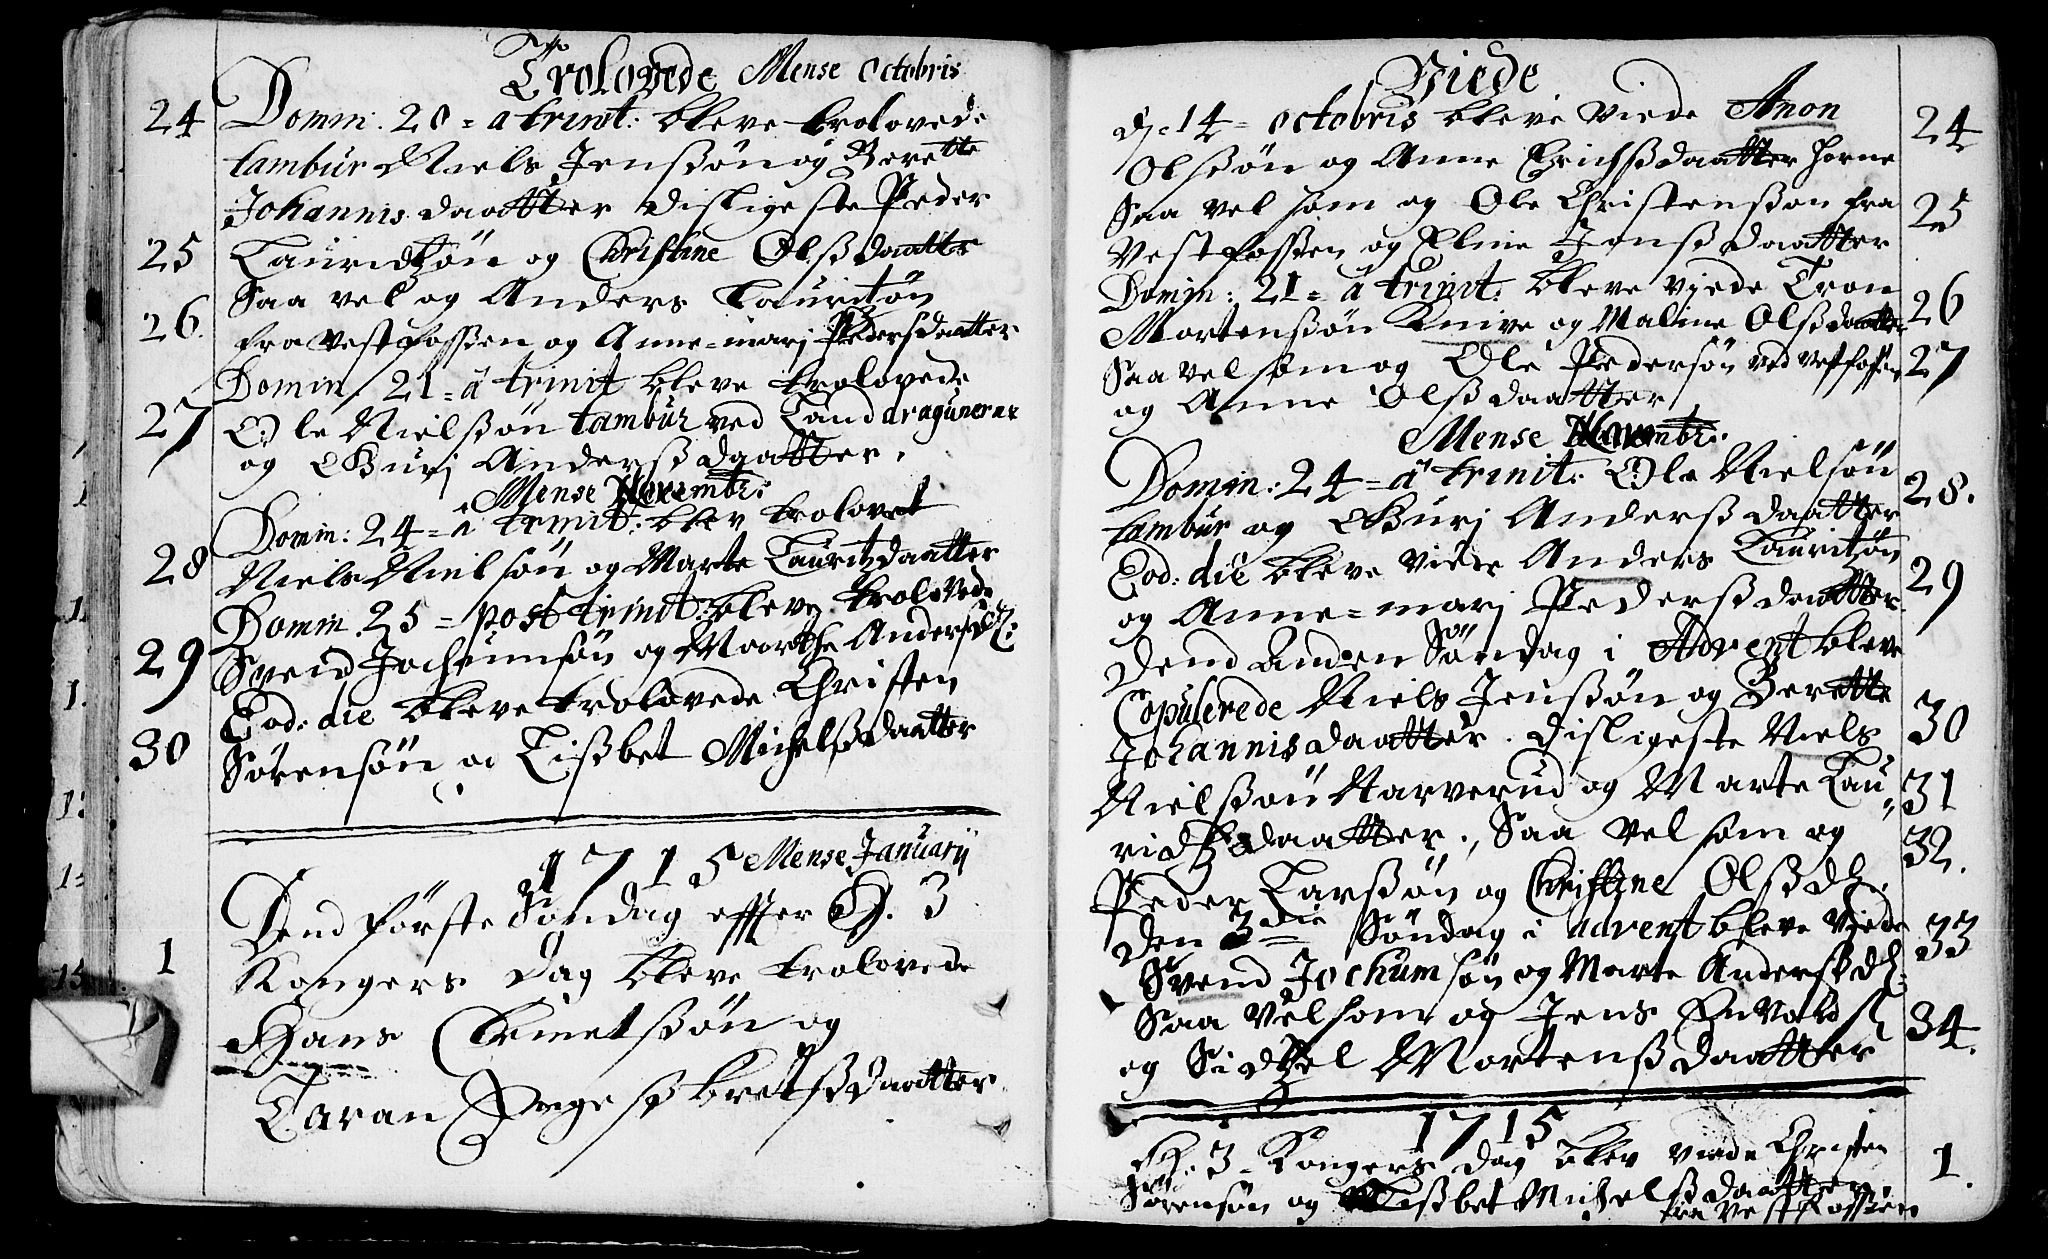 Trolovede Mense Octobris
24 Domin. 20 = a trinit: bleve trolovede
tambur Niels Jenssøn og Berette
Johannis daatter disligeste Peder
25 Lauridtzøn og Christine Olss daatter
Saa vel og Anders Lauritzøn
26. fra Vestfossen og Anne=marj Pedersdaatter
Domin. 21 = a trinit bleve trolovede
27 Ole Nielssøn tambur ved Land dragunerne
og Gurj Anderss daatter.
Mense Novembr:
Domin: 24 = a trinit: blev trolovet
28 Niels Nielsøn og Marte Lauritzdaatter
Domin. 25 = post trinit: bleve trolovede
29 Svend Jochumsøn og Marthe Andersd:
Eod: die bleve trolovede Christen
30 Sørensøn og Lissbet Michelssdaatter
1715 Mense Januarij
Dend første Søndag effter H. 3
1 Kongers Dag bleve trolovede
Hans Knietssøn og
Taran Ingessbretssdaatter
Viede
d. 14 = octobris bleve viede Anon 24
Olssøn og Anne Erichssdaatter Horne
Saa vel som og Ole Christenssøn fra 25
Vestfossen og Eline Jenss daatter
Domin: 21 = a trinit: bleve vjede Tron 26
Mortenssøn Knive og Maline Olssdaatter
Saa vel som og Ole Pedersøn ved Vestfossen 27
og Anne Olssdaatter
Mense Novembr:
Domin: 24 = a trinit: Ole Nielsøn 28.
tambur og Gurj Anderss daatter
Eod: die bleve viede Anders Lauritzøn 29
og Anne=marj Pederss daatter.
Dend Anden Søndag i Advent bleve
Copulerede Niels Jenssøn og Berette 30
Johannisdaatter. disligeste Niels
Nielssøn Narverud og Marte Lau 31
ridtzdaatter., Saa vel som og 32.
Peder Larssøn og Christine Olssd.
Den 3die Søndag i advent bleve vjede 33
Svend Jochumsøn og Marte Anderssd:
Saa vel som og Jens Envold 34.
og Sidtzel Mortenssdaatter
1715
H. 3. Kongers dag blev viede Christen 1.
Sørensøn og Lissbet Michelssdaatter.
fra Vestfossen